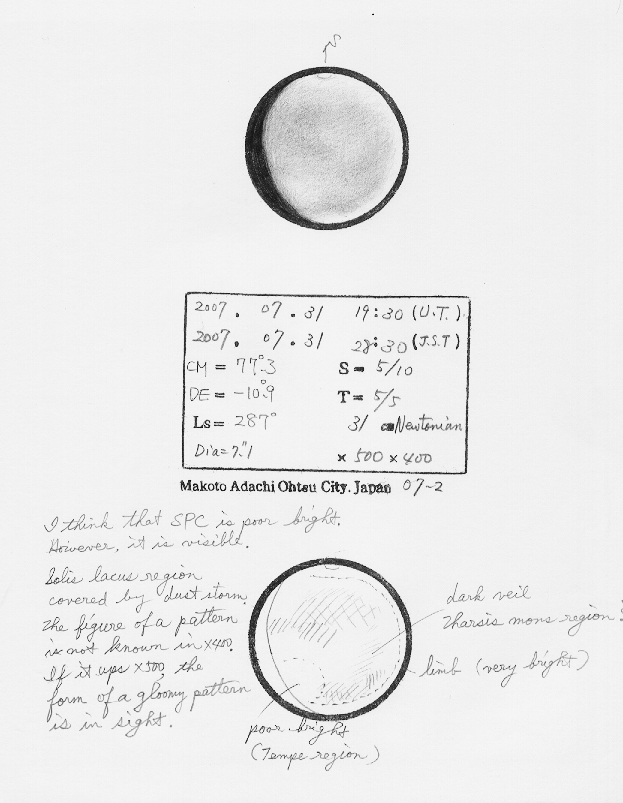 S
2007. 07. 31 19:30 (U.T.)
2007. 07. 31 28:30 (J.S.T)
CM = 77°.3 S = 5/10
DE = -10°.9 T = 5/5
Ls = 287° 31 cm Newtonian
Dia = 7".1 × 500 × 400
Makoto Adachi Ohtsu City. Japan 07-2
I think that SPC is poor bright.
However, it is visible.
Solis lacus region
covered by dust storm.
The figure of a pattern
is not known in ×400.
If it ups ×500, the
form of a gloomy pattern
is in sight.
dark veil
Tharsis mons region?
limb (very bright)
poor bright
(Tempe region)